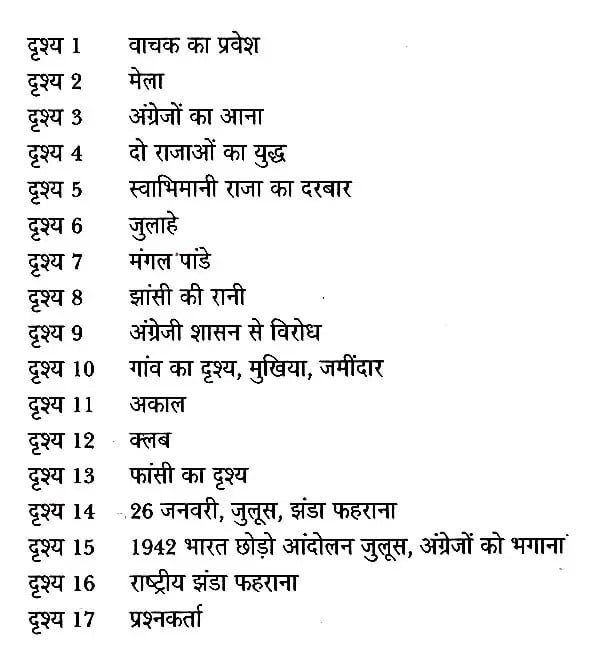 दृश्य 1 वाचक का प्रवेश
दृश्य 2 मेला
दृश्य 3 अंग्रेजों का आना
दृश्य 4 दो राजाओं का युद्ध
दृश्य 5 स्वाभिमानी राजा का दरबार
दृश्य 6 जुलाहे
दृश्य 7 मंगल पांडे
दृश्य 8 झांसी की रानी
दृश्य 9 अंग्रेजी शासन से विरोध
दृश्य 10 गांव का दृश्य, मुखिया, जमींदार
दृश्य 11 अकाल
दृश्य 12 क्लब
दृश्य 13 फांसी का दृश्य
दृश्य 14 26 जनवरी, जुलूस, झंडा फहराना
दृश्य 15 1942 भारत छोड़ो आंदोलन जुलूस, अंग्रेजों को भगाना
दृश्य 16 राष्ट्रीय झंडा फहराना
दृश्य 17 प्रश्नकर्ता